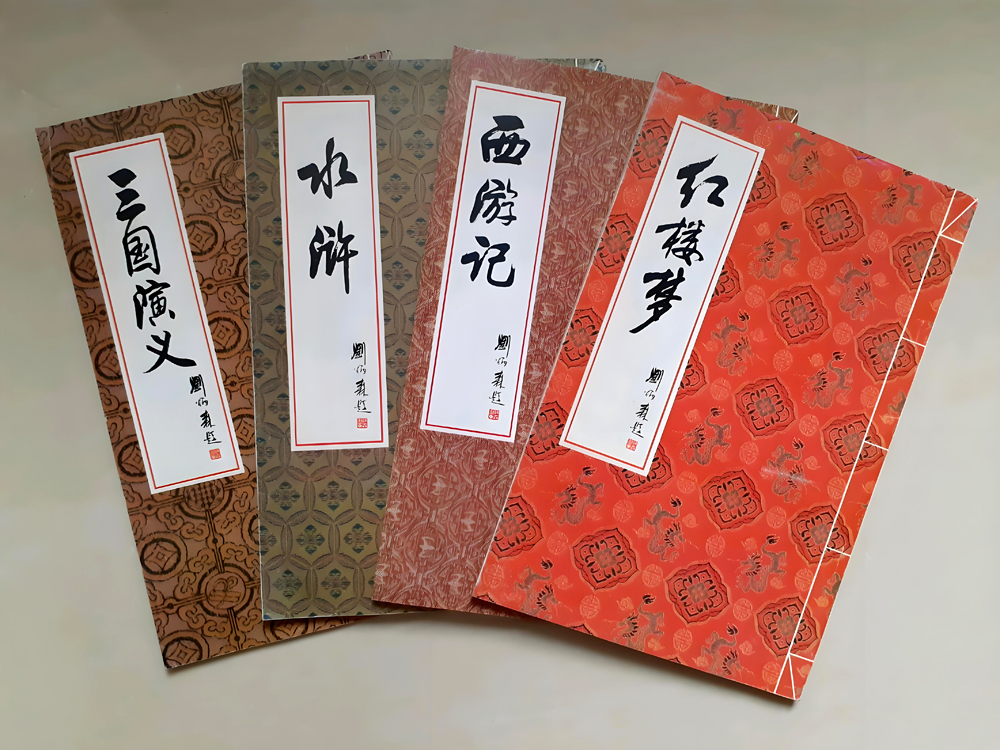 三国演义
劉炳森题
水浒
劉炳森题
西游记
劉炳森题
红楼梦
劉炳森题